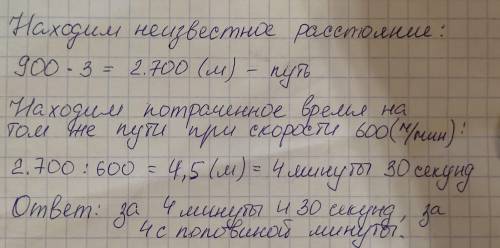 Находим неизвестное расстояние:
900 · 3 = 2.700 (м) - путь
Находим потраченное время на
том же пути при скорости 600 (м/мин):
2.700 : 600 = 4,5 (м) = 4 минуты 30 секунд
Ответ: за 4 минуты и 30 секунд, за
4 с половиной минуты.